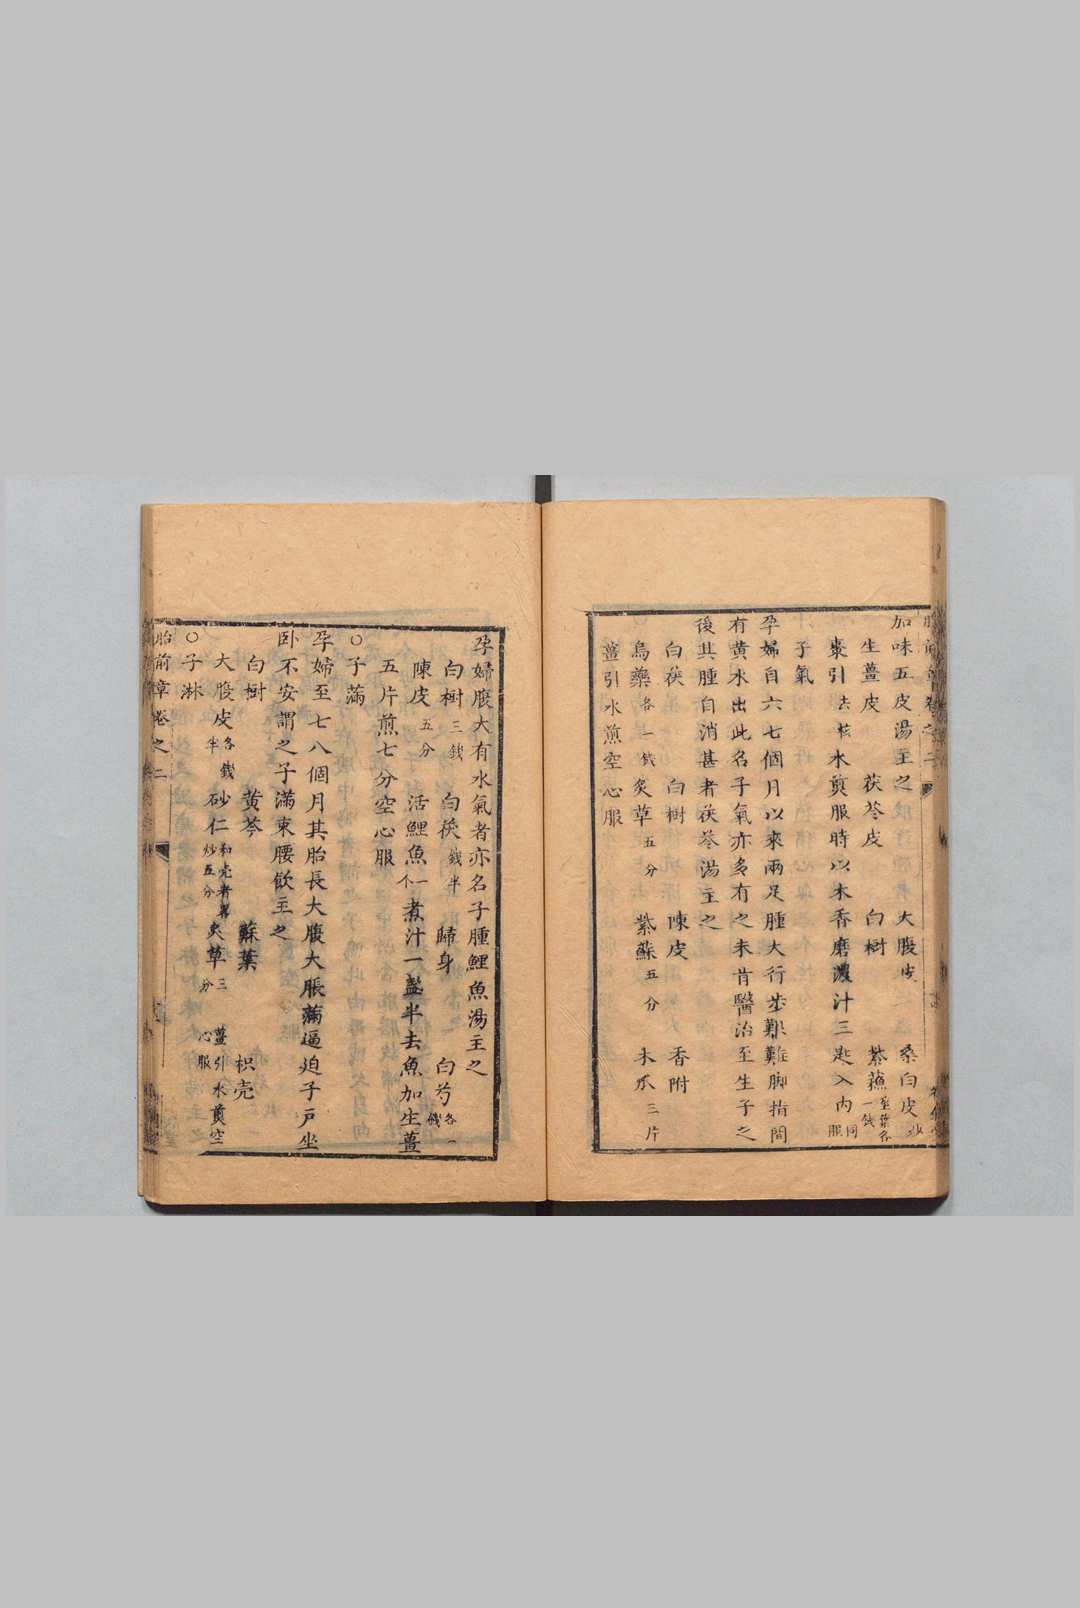 加味五皮湯主之 大腹皮 桑白皮
生薑皮 茯苓皮 白樹 紫蘓
棗引 水煎服時以木香磨濃汁三匙入內同服
子氣
孕婦自六七個月以來兩足腫大行步艱難脚指間
有黄水出此名子氣亦多有之未肯醫治至生子之
後其腫自消甚者茯苓湯主之
白茯 白樹 陳皮 香附
烏藥各一戔 炙草五分 紫蘇五分 木瓜三片
薑引水煎空心服
孕婦腹大有水氣者亦名子腫鯉魚湯主之
白樹三戔 白茯戔半 歸身 白芍各一戔
陳皮五分 活鯉魚一个煮汁一盞半去魚加生薑
五片煎七分空心服
○子滿
孕婦至七八個月其胎長大腹大脹滿逼迫子戶坐
卧不安謂之子滿束腰飲主之
白樹 黄芩 蘇葉 枳壳
大腹皮各戔半 砂仁和壳者炒五分 炙草三分 薑引水煎空心服
○子淋
胎前章卷之二